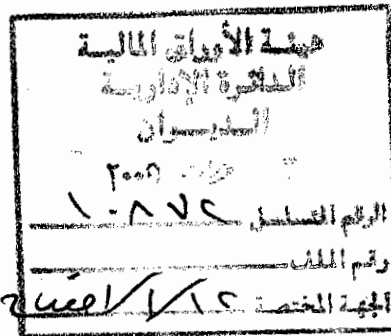 هيئة الأوراق المالية
الدائرة الإدارية
الديوان
٢٠٠٨
الرقم المتسلسل ١٠٨٧٢
رقم الملف
الجهة المختصة ١٢/١/